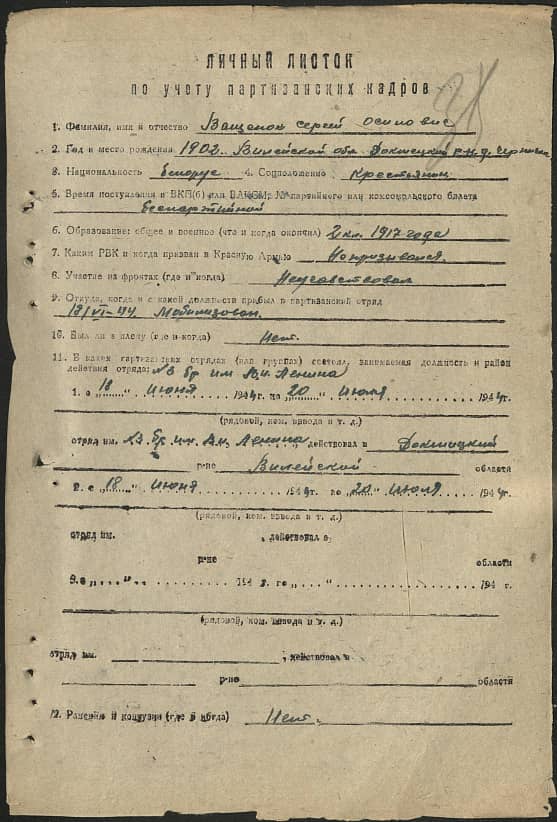 ЛИЧНЫЙ ЛИСТОК
по учету партизанских кадров
1. Фамилия, имя и отчество Ващенок Сергей Осипович
2. Год и место рождения 1902. Вилейской обл. Докшицкий р-н д.
3. Национальность Белорус 4. Соцположение Крестьянин
5. Время поступления в ВКП(б) или ВЛКСМ, № партийного или комсомольского билета
Беспартийной
6. Образование: общее и военное (что и когда окончил) 2 кл. 1917 года
7. Каким РВК и когда призван в Красную Армию Непризывался.
8. Участие на фронтах (где и когда) Неучавствовал
9. Откуда, когда и с какой должности прибыл в партизанский отряд
18/VI-44. Мобилизован.
10. Был ли в плену (где и когда) Нет.
11. В каких партизанских отрядах (или группах) состоял, занимаемая должность и район
действия отряда: бр им В.И. Ленина
1. с „18" Июня 1944 г. по „20" Июля 1944 г.
(рядовой, ком. взвода и т. д.)
отряд им. бр. им. В.И. Ленина, действовал в Докшицкий
р-не Вилейской области
2. с „18" Июня 1944 г. по „20" Июля 1944 г.
(рядовой, ком. взвода и т. д.)
отряд им. , действовал в
р-не области
3. с „......" 194 г. по „...." 194 г.
(рядовой, ком. взвода и т. д.)
отряд им. , действовал в
р-не области
12. Ранения и контузии (где и когда) Нет.